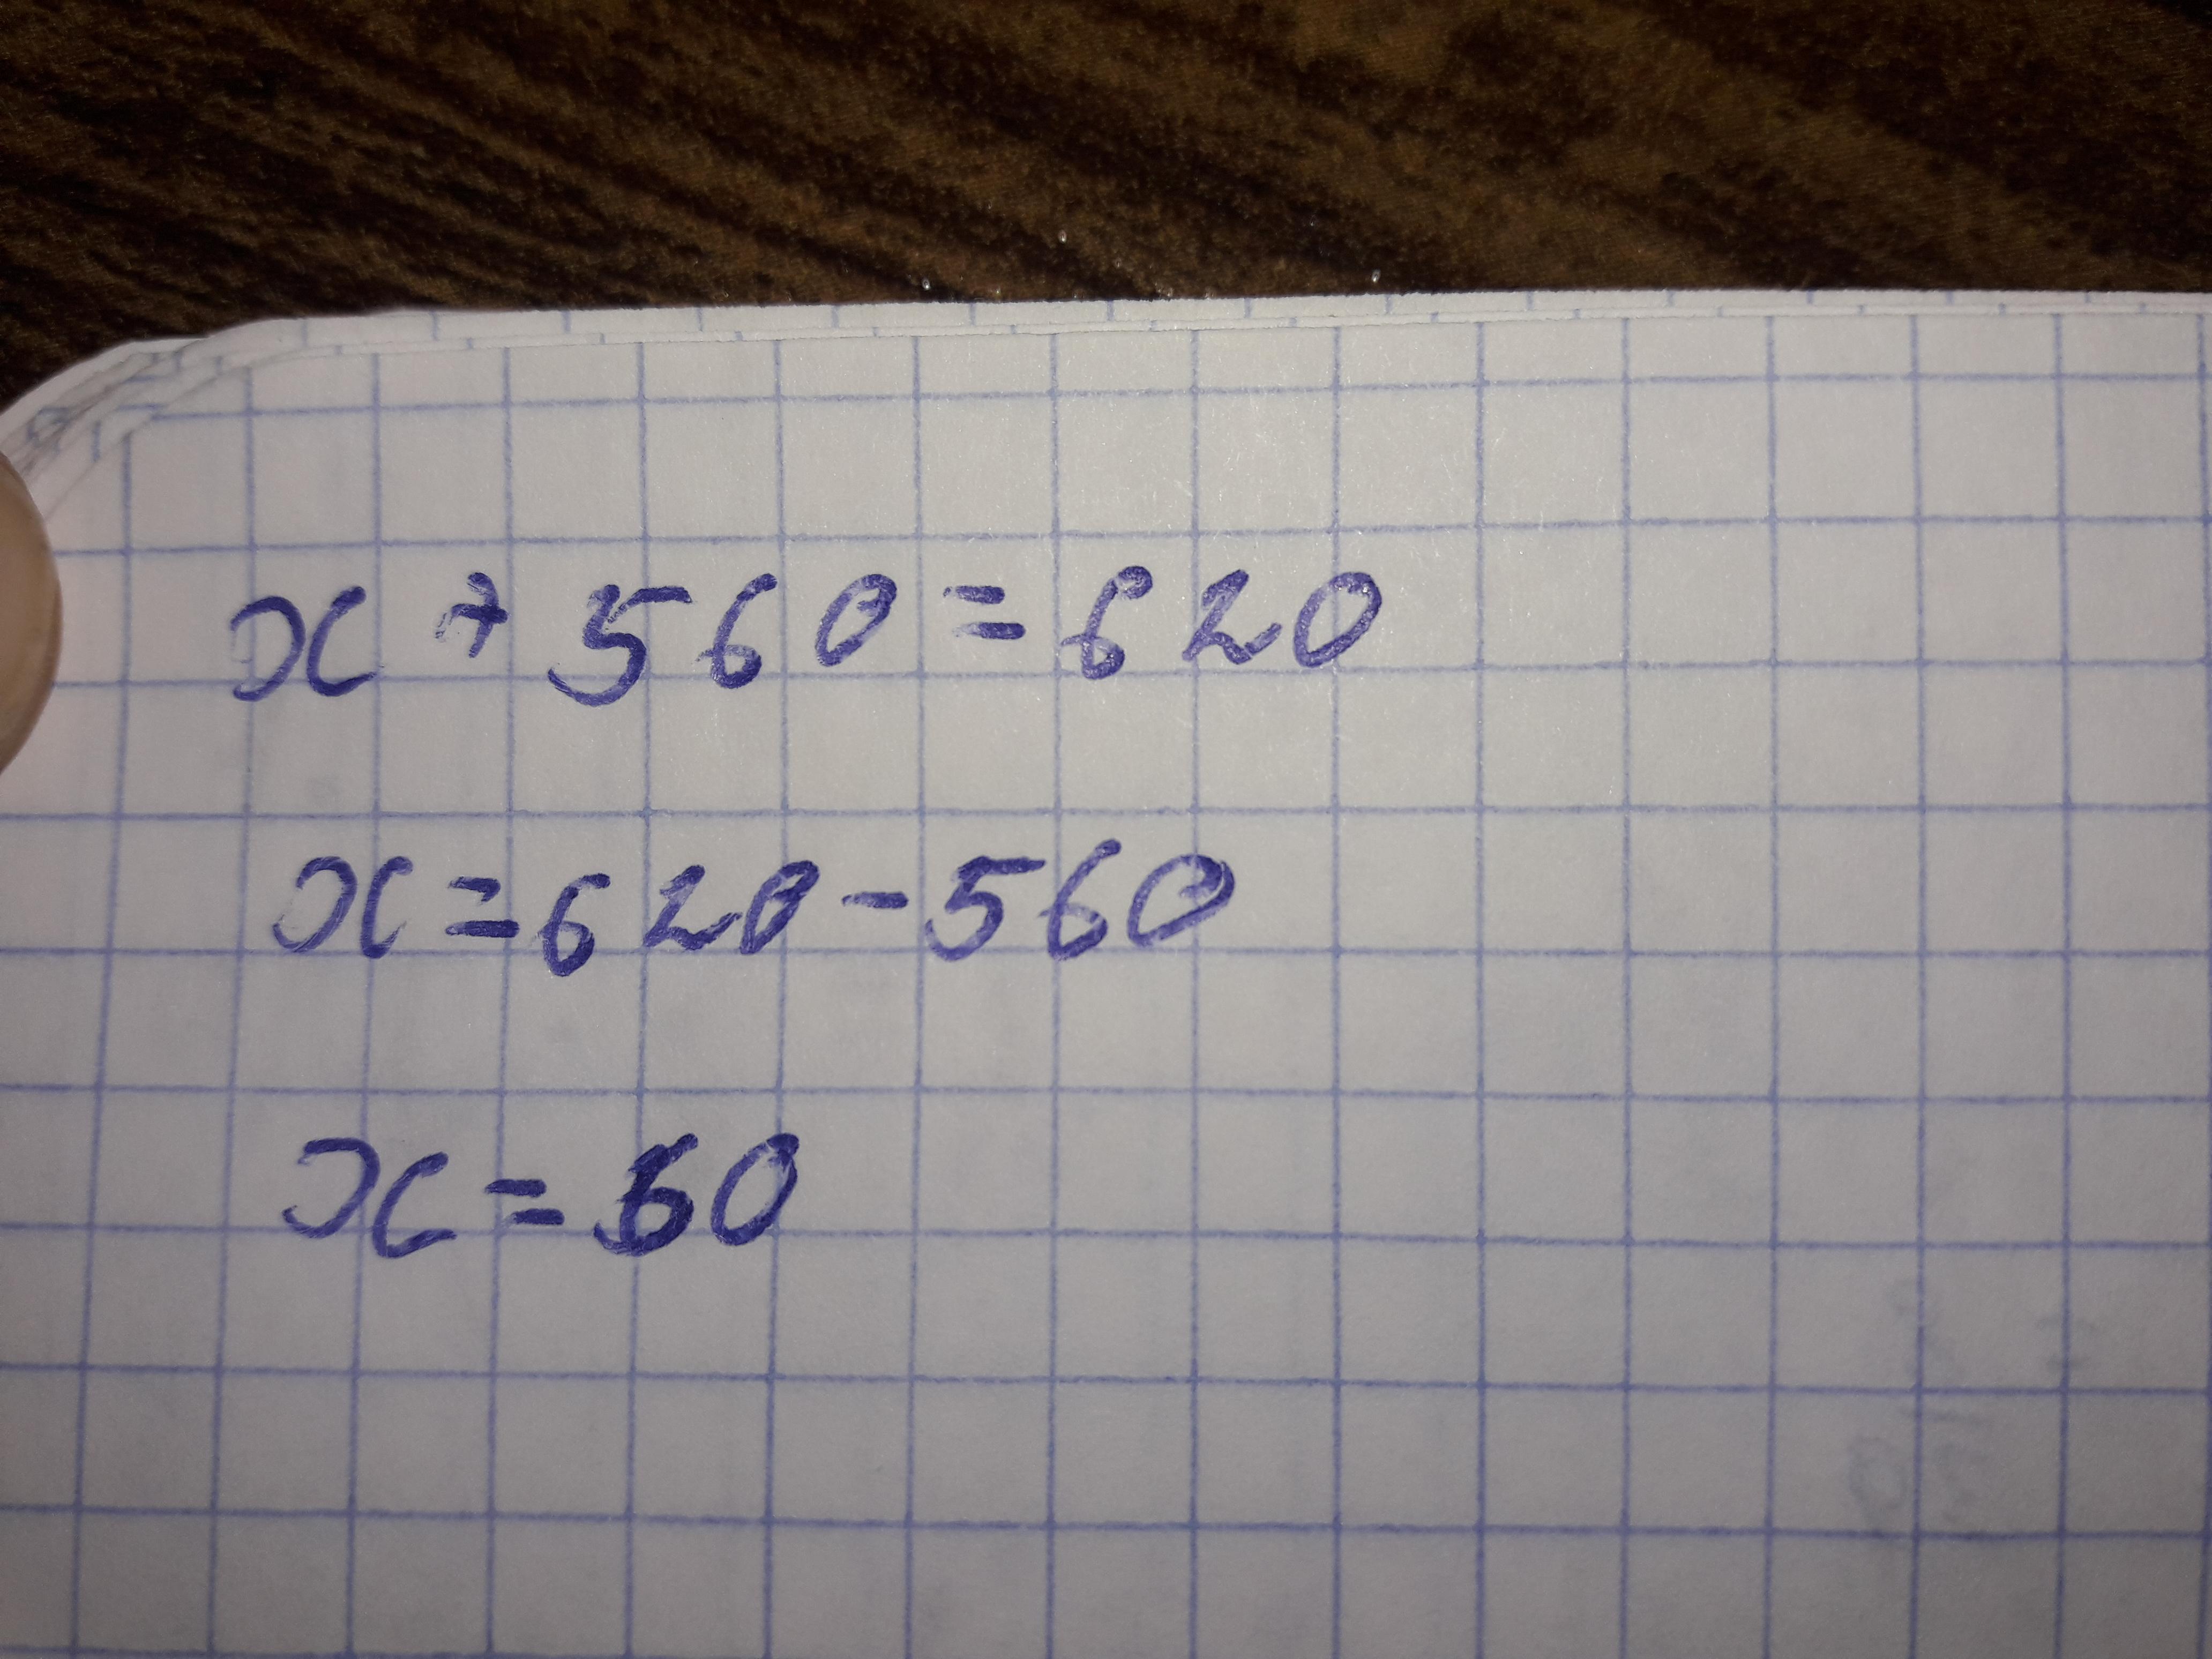 x + 560 = 620
x = 620 - 560
x = 60